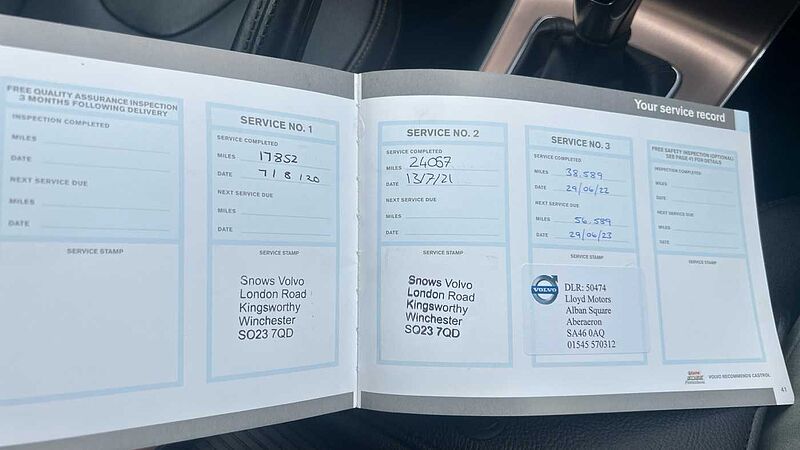 Your service record
FREE QUALITY ASSURANCE INSPECTION
3 MONTHS FOLLOWING DELIVERY
INSPECTION COMPLETED
MILES
DATE
NEXT SERVICE DUE
MILES
DATE
SERVICE STAMP
SERVICE NO. 1
SERVICE COMPLETED
MILES 17852
DATE 7/8/20
NEXT SERVICE DUE
MILES
DATE
SERVICE STAMP
Snows Volvo
London Road
Kingsworthy
Winchester
SO23 7QD
SERVICE NO. 2
SERVICE COMPLETED
MILES 24067
DATE 13/7/21
NEXT SERVICE DUE
MILES
DATE
SERVICE STAMP
Snows Volvo
London Road
Kingsworthy
Winchester
SO23 7QD
SERVICE NO. 3
SERVICE COMPLETED
MILES 38.589
DATE 29/06/22
NEXT SERVICE DUE
MILES 56.589
DATE 29/06/23
SERVICE STAMP
VOLVO
DLR: 50474
Lloyd Motors
Alban Square
Aberaeron
SA46 0AQ
01545 570312
FREE SAFETY INSPECTION (OPTIONAL)
SEE PAGE 41 FOR DETAILS
INSPECTION COMPLETED
MILES
DATE
NEXT SERVICE DUE
MILES
DATE
SERVICE STAMP
VOLVO RECOMMENDS CASTROL